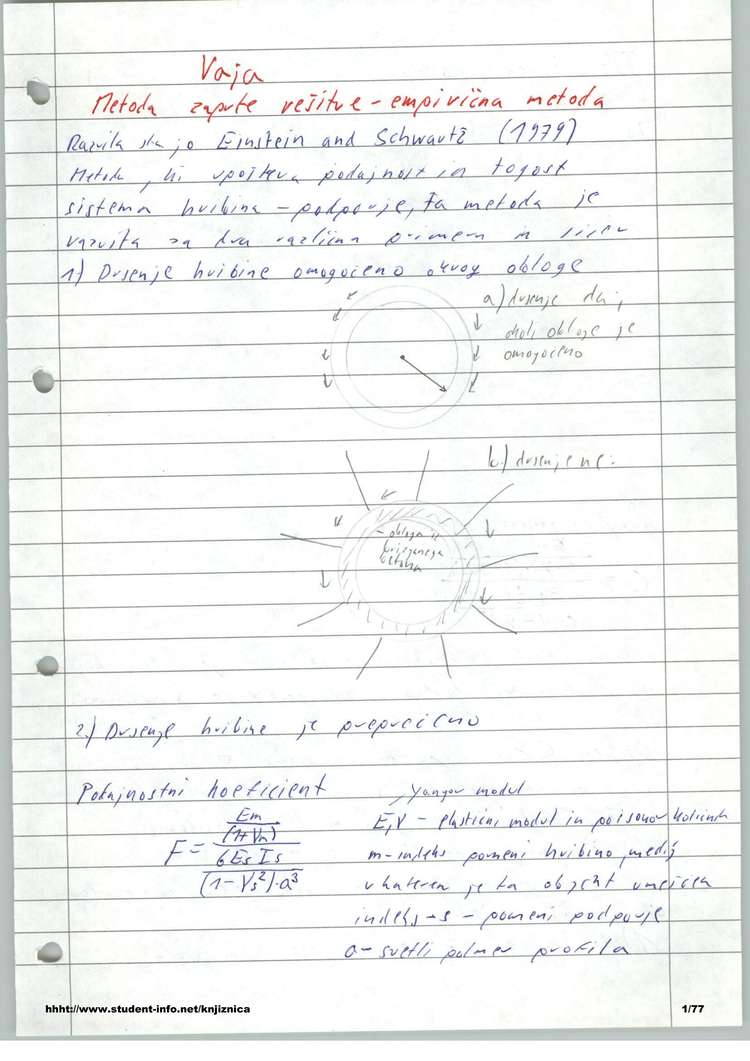 Vaja
Metoda zaprte rešitve - empirična metoda
Razvila sta jo Einstein and Schwartz (1979)
Metoda, ki upošteva podajnost in togost
sistema hribina - podporje, ta metoda je
razvita za dva različna primera in sicer
1) Drsenje hribine omogočeno okrog obloge
a) drsenje
okoli obloge je
omogočeno
b.) drsenje ne.
- obloga iz
brizganega
betona
2.) Drsenje hribine je preprečeno
Podajnostni koeficient
Yangov modul
F = \frac{\frac{Em}{(1+Vm)}}{\frac{6 Es Is}{(1-Vs²)·a³}}
E, V - elastični modul in poisonov količnik
m-indeks pomeni hribino, medij
v katerem je ta objekt umeščen
indeks -s - pomeni podporje
a- svetli polmer profila
hhht://www.student-info.net/knjiznica
1/77